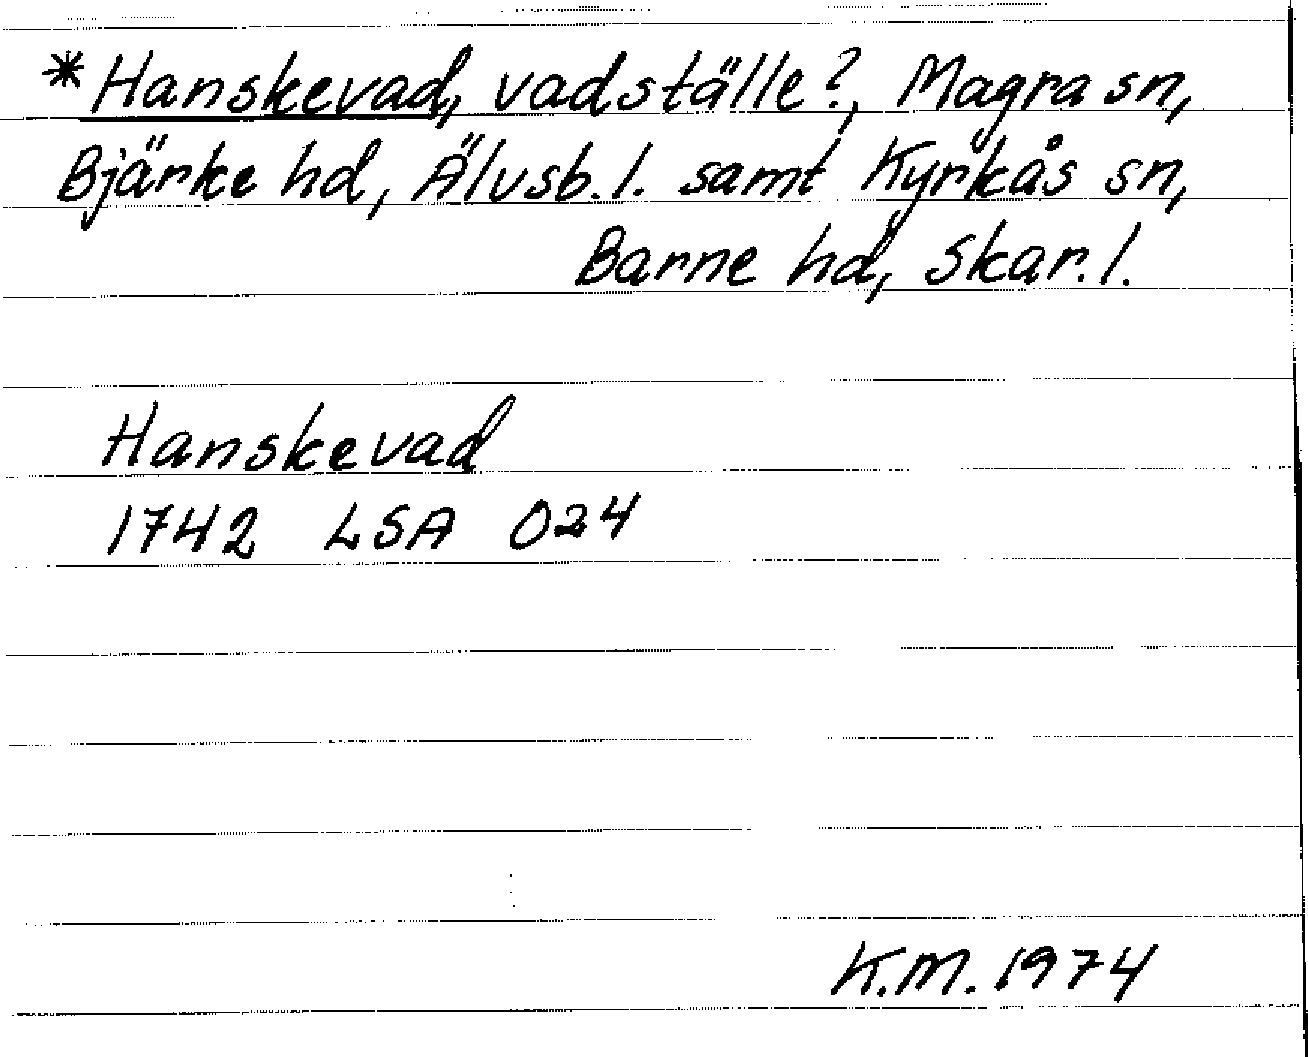 *Hanskevad, vadställe?, Magra sn,
Bjärke hd, Älvsb.l. samt Kyrkås sn,
Barne hd, Skar.l.
Hanskevad
1742 LSA O24
K.M. 1974